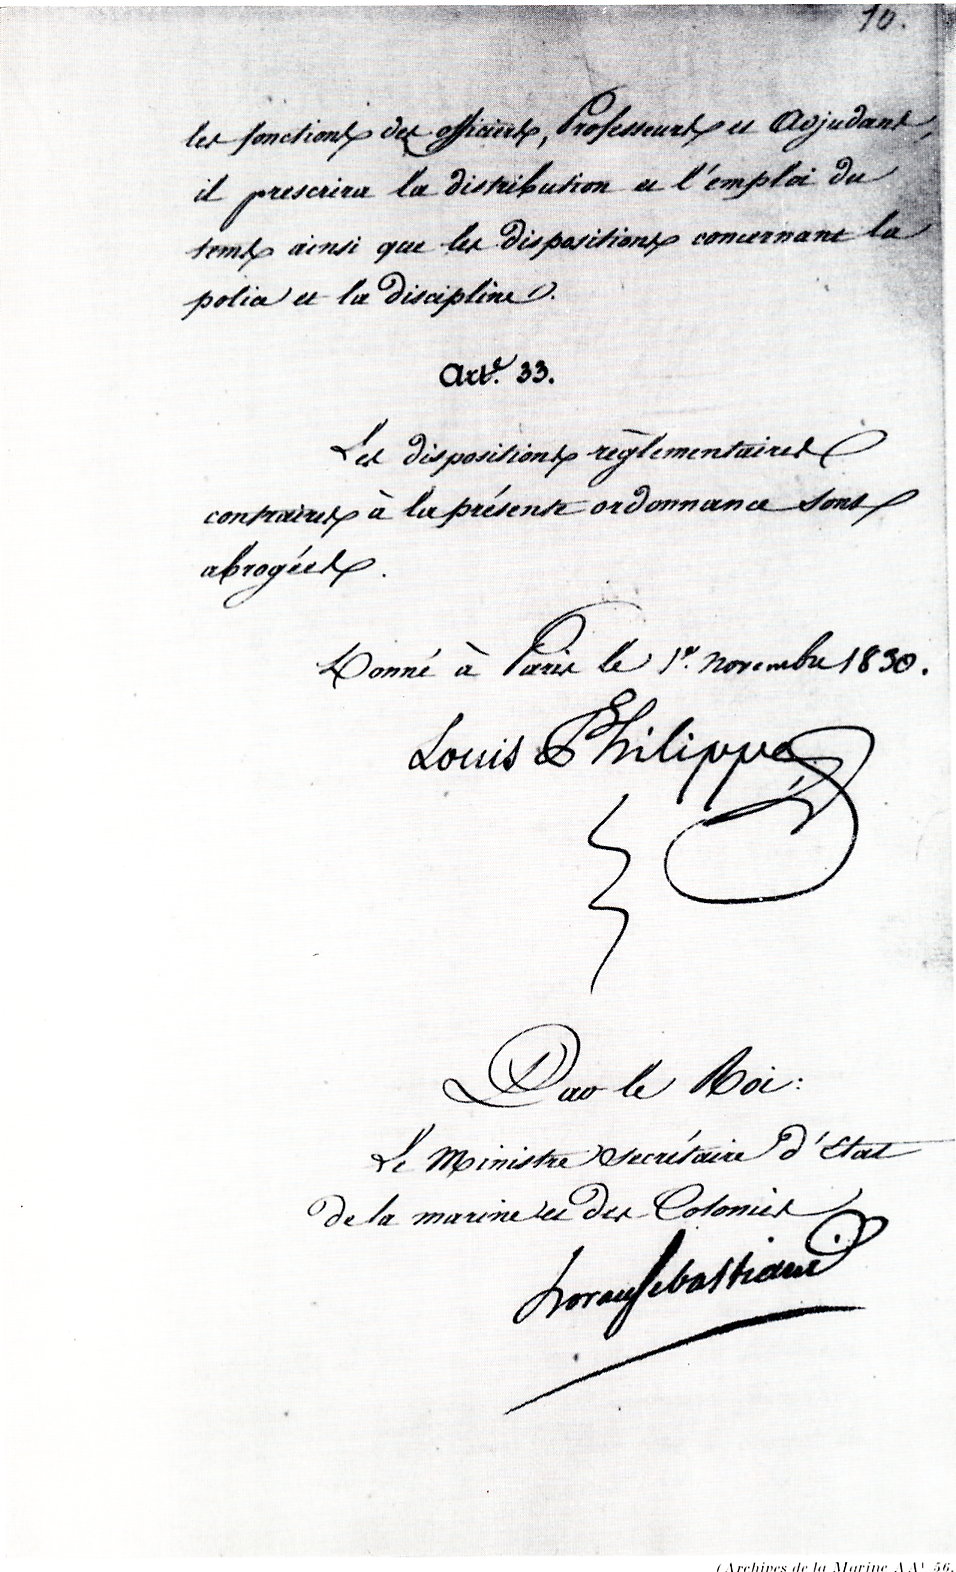 10.
les fonctions des officiers, Professeurs et Adjudants,
il prescrira la distribution et l'emploi du
tems ainsi que les dispositions concernant la
police et la discipline.
Art.e 33.
Les dispositions règlementaires
contraires à la présente ordonnance sont
abrogées.
Donné à Paris le 1er. novembre 1830.
Louis Philippe
Par le Roi:
Le Ministre Secrétaire d'Etat
de la marine et des Colonies
horace Sebastiani
(Archives de la Marine AA¹ 56.